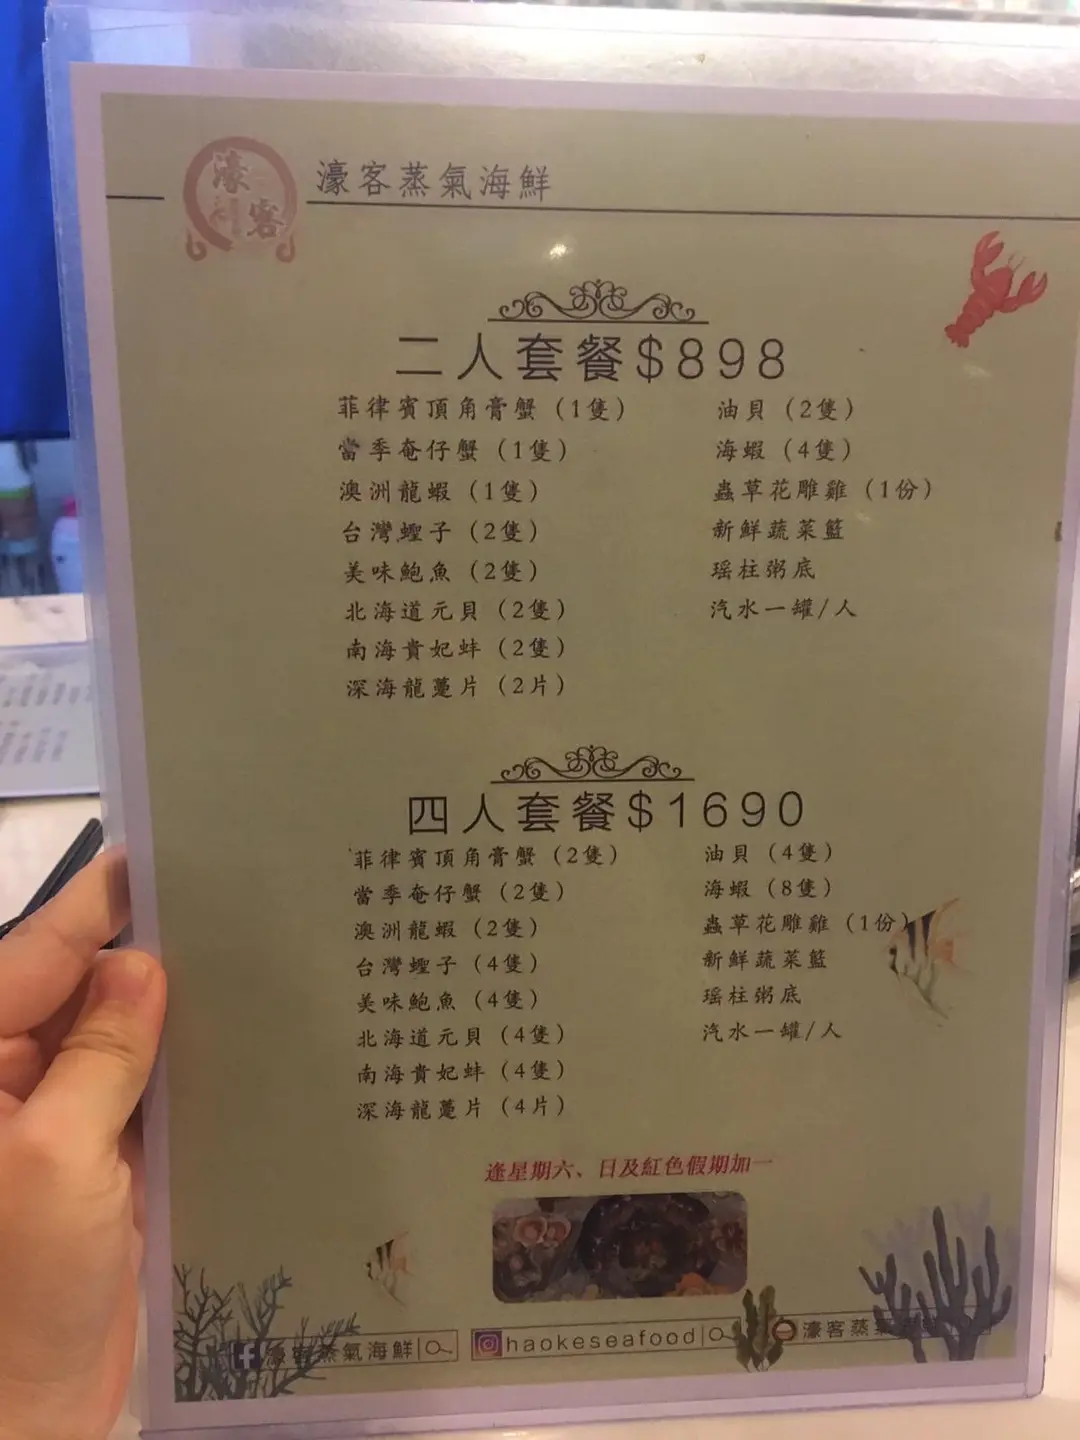 濠
客
濠客蒸氣海鮮
二人套餐$898
菲律賓頂角膏蟹（1隻）
當季奄仔蟹（1隻）
澳洲龍蝦（1隻）
台灣蟶子（2隻）
美味鮑魚（2隻）
北海道元貝（2隻）
南海貴妃蚌（2隻）
深海龍躉片（2片）
油貝（2隻）
海蝦（4隻）
蟲草花雕雞（1份）
新鮮蔬菜籃
瑶柱粥底
汽水一罐/人
四人套餐$1690
菲律賓頂角膏蟹（2隻）
當季奄仔蟹（2隻）
澳洲龍蝦（2隻）
台灣蟶子（4隻）
美味鮑魚（4隻）
北海道元貝（4隻）
南海貴妃蚌（4隻）
深海龍躉片（4片）
油貝（4隻）
海蝦（8隻）
蟲草花雕雞（1份）
新鮮蔬菜籃
瑶柱粥底
汽水一罐/人
逢星期六、日及紅色假期加一
濠客蒸氣海鮮
haokeseafood
濠客蒸氣